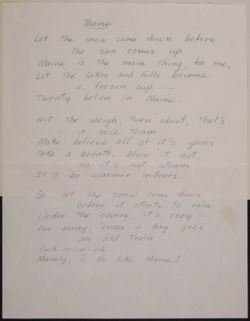 Maine
Let the snow come down before
the sun comes up
Maine is the main thing, for me,
Let the lakes and hills become
a frozen cup —
Twenty below in Maine.
Hit the sleigh, turn about, that's
a nice team
Make believe all of it's yours
Take a breath, blow it out,
no it's not steam
It'll be warmer indoors.
So let the snow come down
before it starts to rain
Under the covers, it's cozy —
Far away, 'cross a bay goes
an old train
Mainly, I do like Maine!